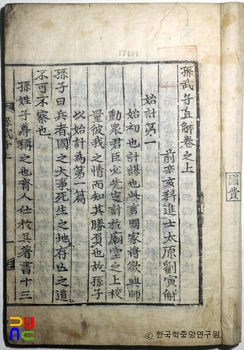 孫武子直解卷之上
前辛亥科進士太原劉寅解
始計第一
始初也計謀也此言國家將欲興師
動衆君臣必先定計於廟堂之上校
量彼我之情而知其勝負也故孫子
以始計為第一篇
孫子曰兵者國之大事死生之地存亡之道
不可不察也
孫姓子尊稱之也齊人仕於吳著書十三
17451
한국학중앙연구원